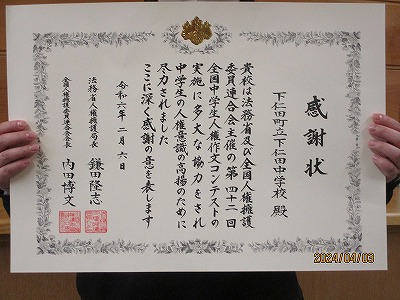 感謝状
下仁田町立下仁田中学校 殿
貴校は法務省及び全国人権擁護
委員連合会主催の第四十二回
全国中学生人権作文コンテストの
実施に多大な協力をされ
中学生の人権意識の高揚のために
尽力されました
ここに深く感謝の意を表します
令和六年二月六日
法務省人権擁護局長 鎌田隆志
全国人権擁護委員連合会会長 内田博文
2024/04/03